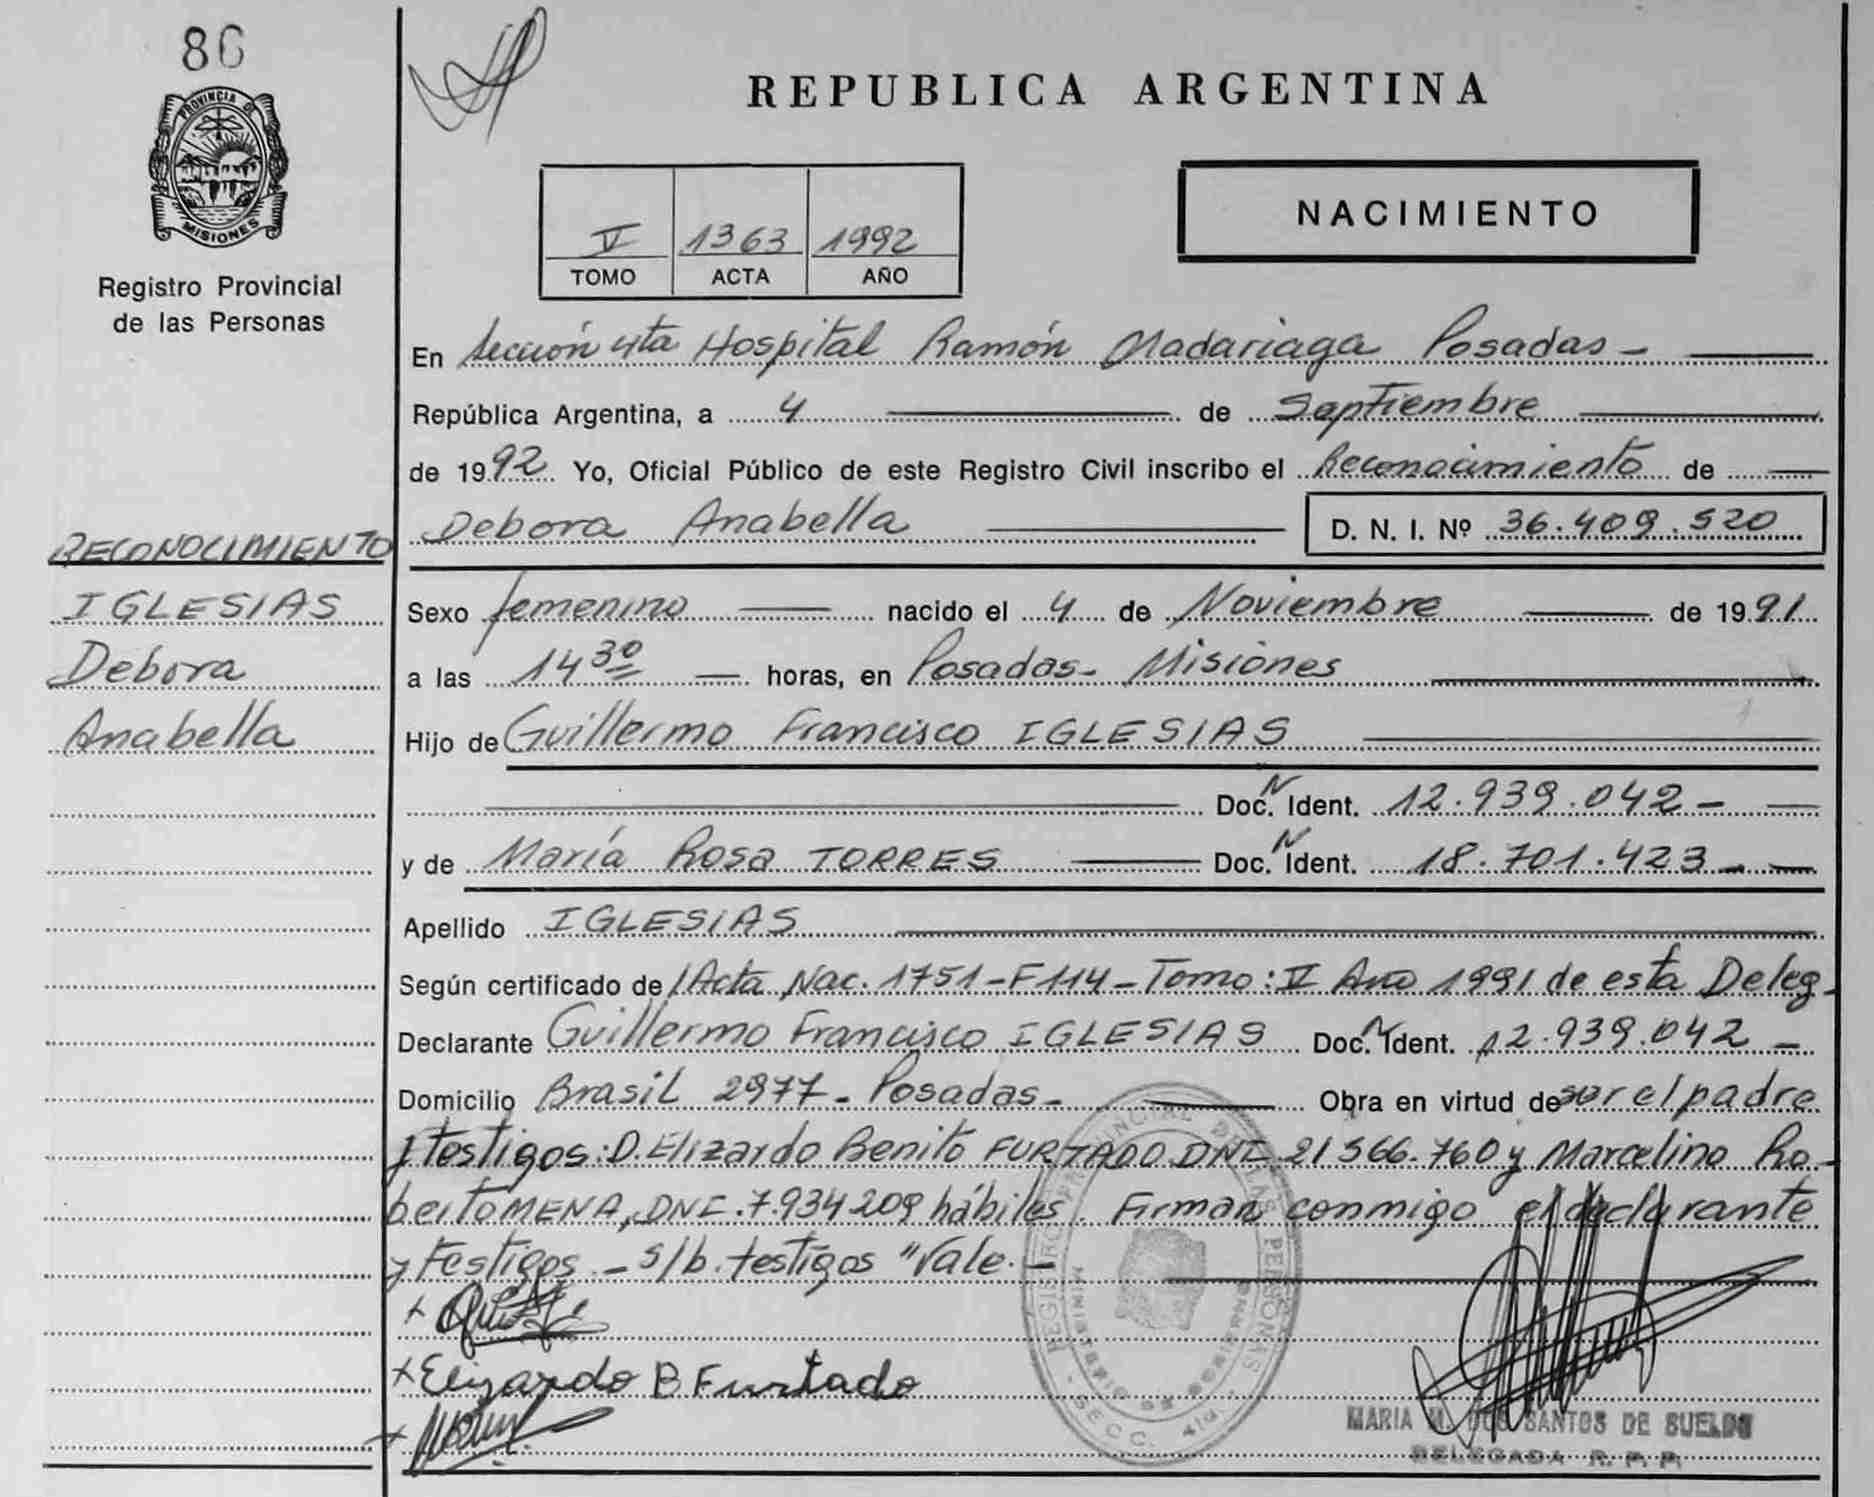 86
PROVINCIA DE
MISIONES
Registro Provincial
de las Personas
REPUBLICA ARGENTINA
V 1363 1992
TOMO ACTA AÑO
NACIMIENTO
En Sección 4ta Hospital Ramón Madariaga Posadas -
República Argentina, a 4 de Septiembre
de 1992 Yo, Oficial Público de este Registro Civil inscribo el Reconocimiento de
Debora Anabella D. N. I. Nº 36.409.520
RECONOCIMIENTO
IGLESIAS
Debora
Anabella
Sexo femenino nacido el 4 de Noviembre de 1991
a las 14 30 horas, en Posadas - Misiones
Hijo de Guillermo Francisco IGLESIAS
Doc. N Ident. 12.939.042 -
y de María Rosa TORRES Doc. N Ident. 18.701.423 -
Apellido IGLESIAS
Según certificado de Acta Nac. 1751 - F 114 - Tomo: V Año 1991 de esta Deleg -
Declarante Guillermo Francisco IGLESIAS Doc. N Ident. 12.939.042 -
Domicilio Brasil 2977 - Posadas - Obra en virtud de ser el padre
y testigos: D. Elizardo Benito FURTADO DNI 21 366.760 y Marcelino Ro-
berto MENA, DNI. 7.934 209 hábiles. Firman conmigo el declarante
y testigos - s/b. testigos "Vale. -
+ Elizardo B Furtado
REGISTRO PROVINCIAL DE LAS PERSONAS
MINISTERIO DE GOBIERNO
SECC. 4ta.
MARIA M. DOS SANTOS DE SUELDO
DELEGADA R. P. P.